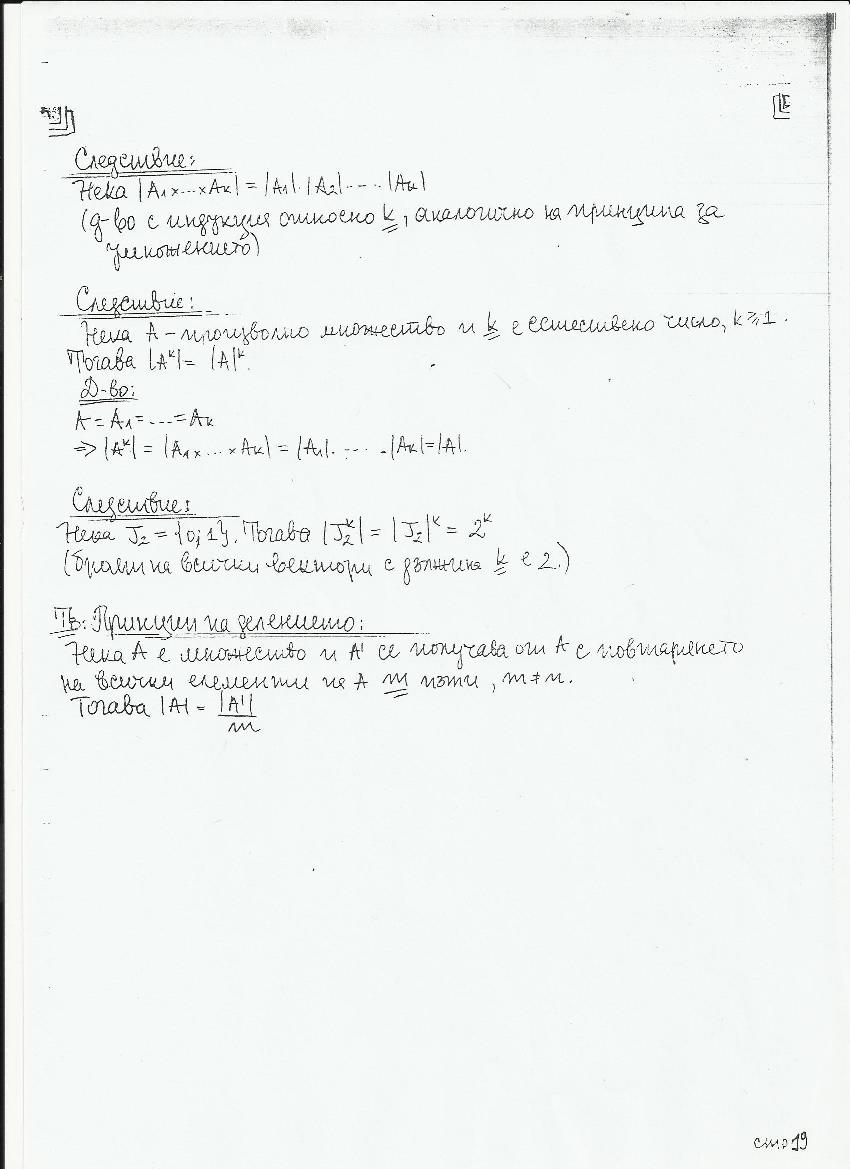 Следствие:
Нека |A₁×...×Aₖ| = |A₁|.|A₂|.....|Aₖ|
(д-во с индукция относно k, аналогично на принципа за
умножението)
Следствие:
Нека A - произволно множество и k е естествено число, k ≥ 1.
Тогава |Aᵏ| = |A|ᵏ.
Д-во:
A = A₁ = .... = Aₖ
=> |Aᵏ| = |A₁×...×Aₖ| = |A₁|. .... .|Aₖ| = |A|.
Следствие:
Нека J₂ = {0;1}. Тогава |J₂ᵏ| = |J₂|ᵏ = 2ᵏ
(броят на всички вектори с дължина k е 2.)
Тв: Принцип на делението:
Нека A е множество и A' се получава от A с повтарянето
на всички елементи на A m пъти, m ≠ n.
Тогава |A| = |A'|
m
стр 19